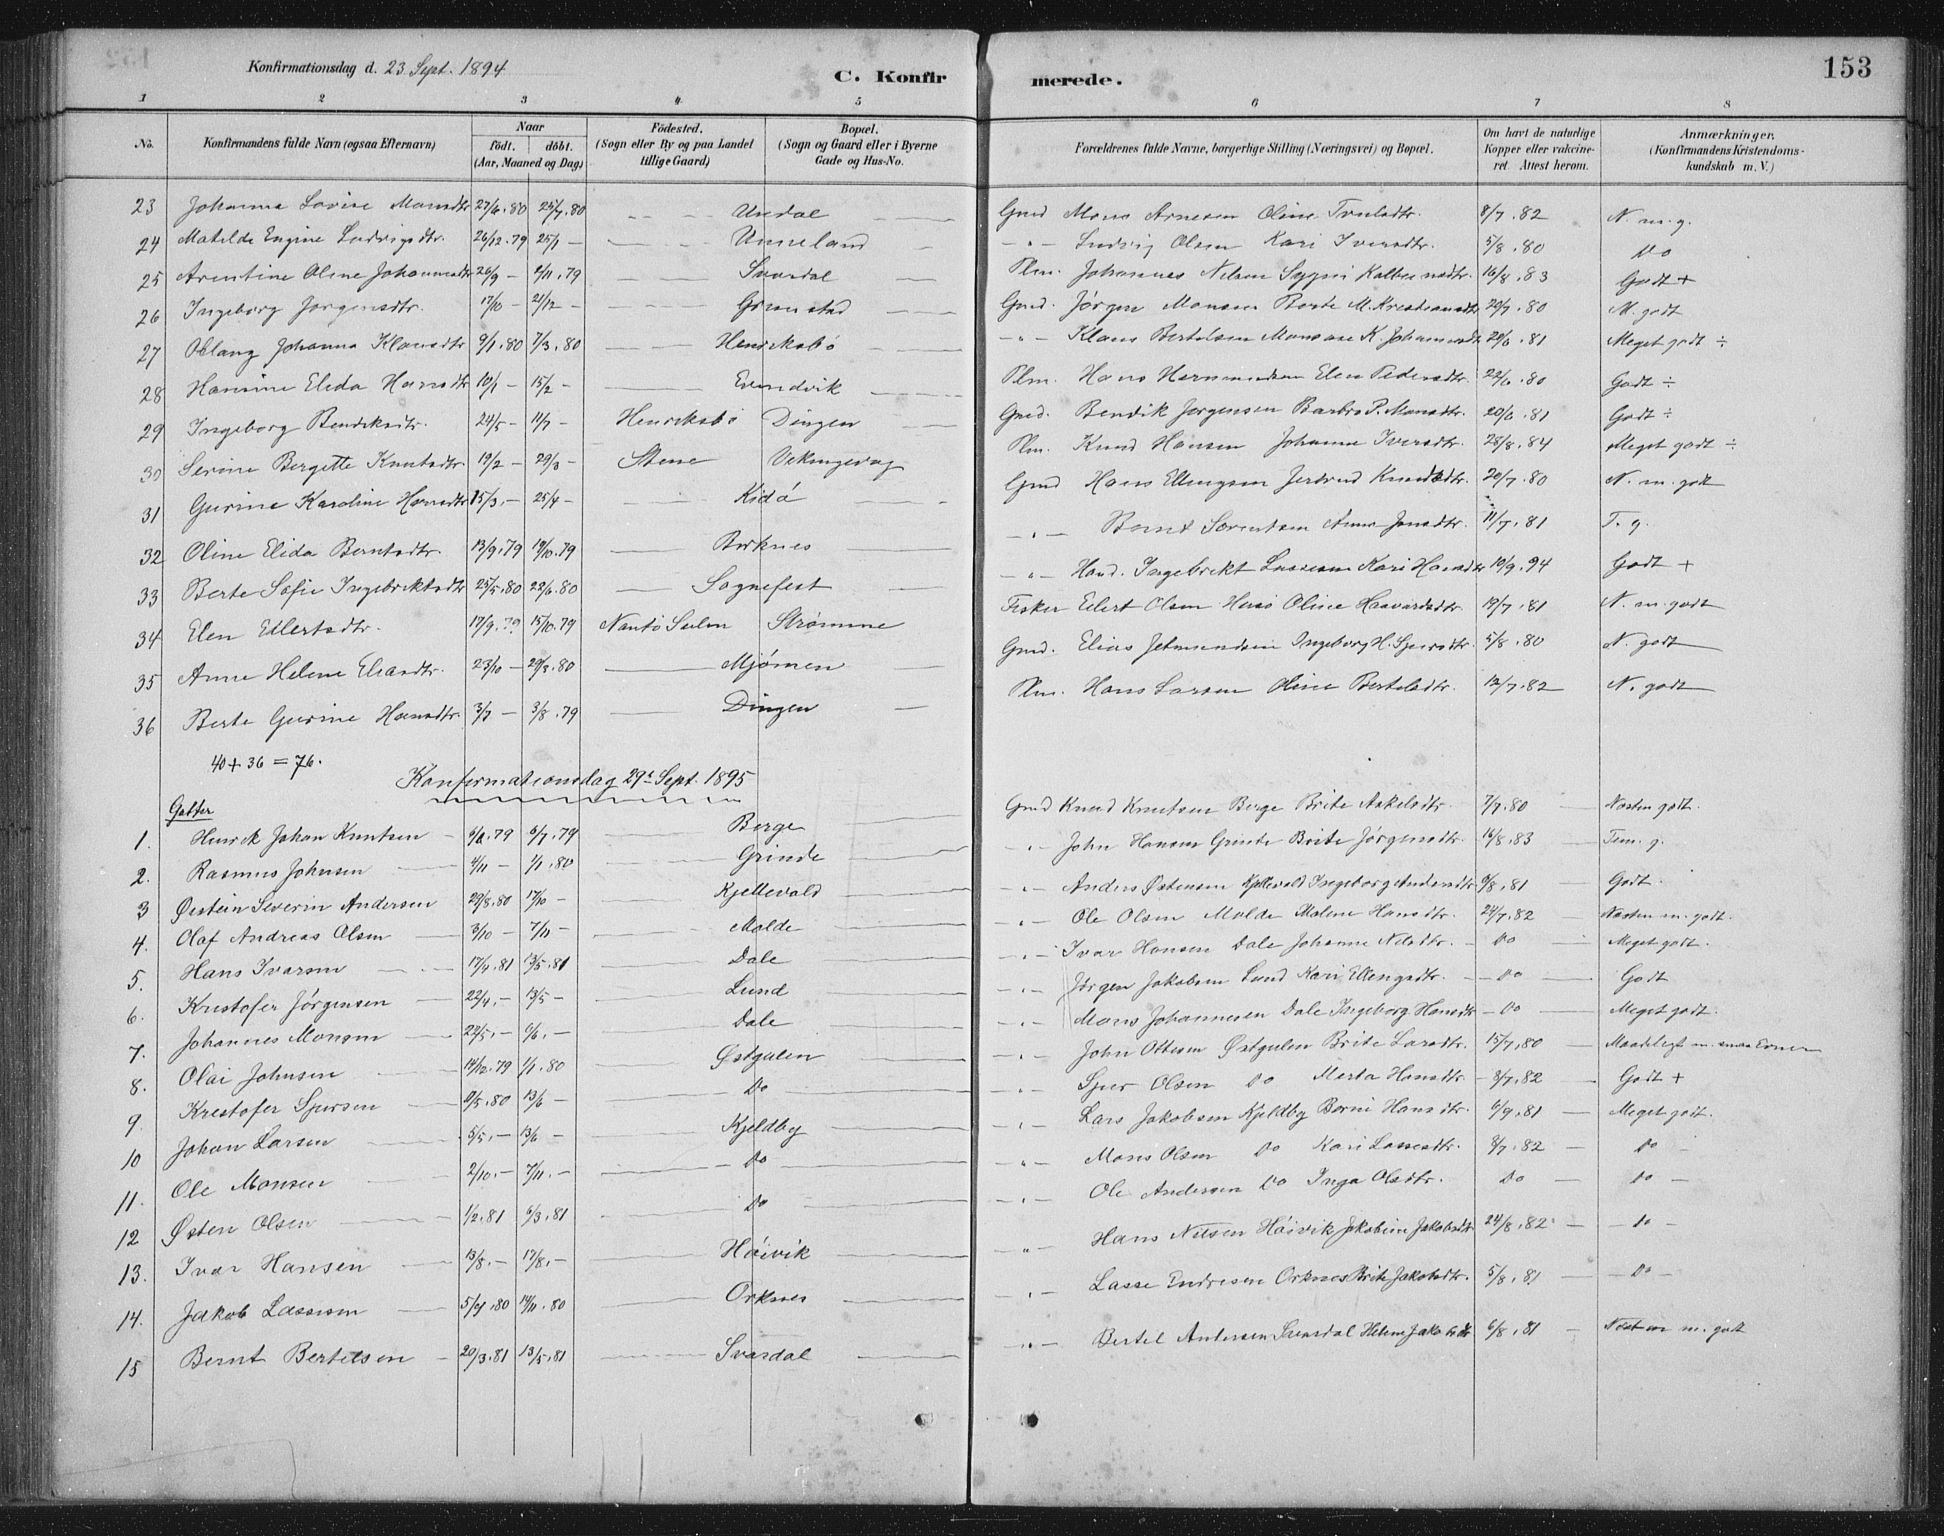 Konfirmationsdag d. 23 Sept. 1894
C. Konfirmerede.
153
1 2 3 4 5 6 7 8
No. Konfirmandens fulde Navn (ogsaa Efternavn) Naar født. døbt. (Aar, Maaned og Dag) Födested. (Sogn eller By og paa Landet tillige Gaard) Bopæl. (Sogn og Gaard eller i Byerne Gade og Hus-No. Forældrenes fulde Navne, borgerlige Stilling (Næringsvei) og Bopæl. Om havt de naturlige Kopper eller vakcineret. Attest herom. Anmærkninger. (Konfirmandens Kristendomskundskab m. V.)
23 Johanna Lovise Monsdtr 27/6.80 25/7.80 Undal Gmd Mons Arnesen Oline 8/7.82 N. m. g.
24 Matilde Engine Ludvigsdtr. 26/12.79 25/1 — Unneland — " — Ludvig Olsen Kari Iversdtr. 5/8.80 Do
25 Arentine Oline Johannesdtr 26/9 — 2/11.79 Svardal Plm. Johannes Nilsen 16/8.83 Godt +
26 Ingeborg Jørgensdtr. 17/10 — 21/12 — Grimstad Gmd. Jørgen Monsen Berte M. Kristiansdtr 29/7.80 N. godt
27 Oblang Johanna Klausdtr 9/1.80 7/3.80 Henriksbø — " — Klaus Bertelsen K. Johannesdtr 29/6.81 Meget godt ÷
28 Hansine Elida Hansdtr 10/1 — 15/2 — Evindvik Plm. Hans Hermundsen Elen Pedersdtr. 22/6.80 Godt ÷
29 Ingeborg Bendiksdtr. 24/5 — 11/7 — Henriksbø Dingen Gmd. Bendik Jørgensen Barbro P. Monsdtr. 20/6.81 Godt ÷
30 Serine Bergitte Knutsdtr. 19/2 — 29/3 — Stene Vikingevåg Plm. Knud Hansen Johanne Iversdtr. 28/8.84 Meget godt ÷
31 Gurine Karoline Hansdtr 15/3. — 25/4 — Kidø Gmd Hans Ellingsen Jertrud Knudsdtr. 20/7.80 N. m. godt
32 Oline Elida Berntsdtr. 13/9.79 19/10.79 Birknes — " — Bernt Sørentsen Anna Jonsdtr. 11/7.81 T. g.
33 Berte Sofie Ingebriktsdtr 25/5.80 22/6.80 Sognefest — " — Hand. Ingebrikt Lassesen Kari Hansdtr 10/9.94 Godt +
34 Elen Eilertsdtr. 17/9.79 15/10.79 Nautø Sulen Strømme Fisker Eilert Olsen Husø Oline Haavardsdtr. 19/7.81 N. m. godt
35 Anne Helene Eliasdtr. 23/10 — 29/3.80 Mjømen Gmd. Elias Jetmundsen Ingeborg H. Sjursdtr. 5/8.80 N. godt
36 Berte Gurine Hansdtr. 3/7 — 3/8.79 Dingen Plm. Hans Larsen Oline Bertelsdtr. 12/7.82 N. godt
40 + 36 = 76.
Konfirmationsdag 29de Sept. 1895
Gutter
1. Henrik Johan Knutsen 6/7.79 Berge Gmd Knud Knutsen Berge Brite Askelsdtr. 7/7.80 Næsten godt.
2. Rasmus Johnsen 4/11 — 1/1.80 Grinde — " — John Hansen Grinde Brite Jørgensdtr. 16/8.83 Tem. g.
3 Østein Severin Andersen 29/8.80 17/10 — Kjellevold — " — Anders Østensen Kjellevold Ingeborg Andersdtr 9/8.81 Godt.
4. Olaf Andreas Olsen 3/10 — 7/11 — Molde — " — Ole Olsen Molde Malene Hansdtr. 24/7.82 Næsten m. godt.
5. Hans Ivarsen 17/4.81 13/5.81 Dale — " — Ivar Hansen Dale Johanne Nilsdtr. — Do Meget godt.
6. Kristofer Jørgensen 22/4. — 13/5 — Lund — " — Jørgen Jakobsen Lund Kari Ellingsdtr. — Do — Godt
7. Johannes Monsen 22/5. — 6/6. — Dale — " — Mons Johannesen Dale Ingeborg Hansdtr — Do — Meget godt.
8. Olai Johnsen 14/12.79 1/1.80 Østgulen — " — John Ottesen Østgulen Brite Larsdtr. 15/7.80 Maadeligt m. smaa Evner
9. Kristofer Sjursen 9/5.80 13/6 — Do — " — Sjur Olsen Do Merta Hansdtr — 8/7.82 Godt +
10 Johan Larsen 5/5. — 13/6 — Kjeldby — " — Lars Jakobsen Kjeldby Børni Hansdtr. 6/9.81 Meget godt.
11. Ole Monsen 2/10. — 7/11. — Do " — Mons Olsen Do Kari Lassesdtr. 8/7.82 — Do
12 Østen Olsen 1/2.81 6/3.81 Do — " — Ole Andersen Do Inga Olsdtr. Do — Do —
13. Ivar Hansen 13/8. — 17/8. — Høivik " — Hans Nilsen Høivik Jakobine Jakobsdtr 24/8.82. — Do —
14. Jakob Lassesen 5/9.80 14/11.80 Orknes Lasse Endresen Orknes Brite Jakobsdtr. 5/8.81 — Do —
15 Bernt Bertelsen 20/3.81 13/5.81 Svardal " — Bertel Andersen Svardal Helene Jakobsdtr 6/8.81 — Næsten m. godt